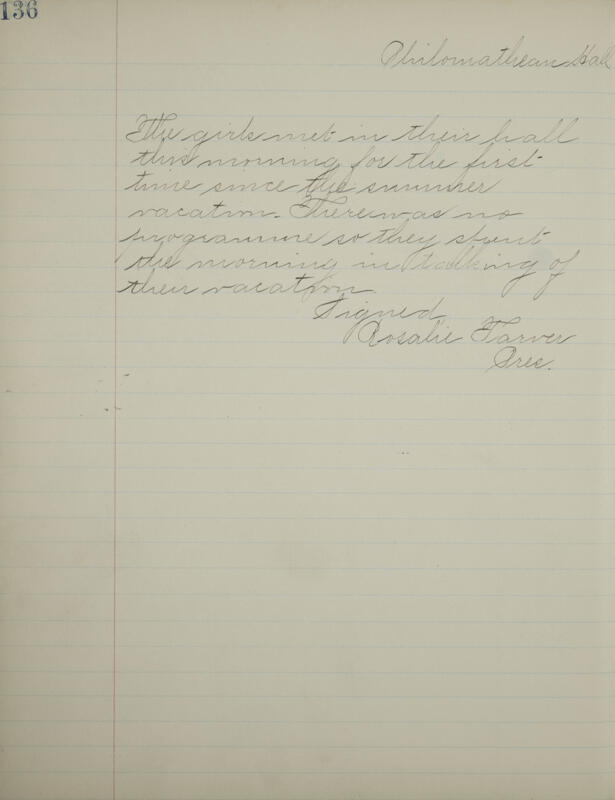 136
Philomathean Hall
The girls met in their hall
this morning for the first
time since the summer
vacation. There was no
programme so they spent
the morning in talking of
their vacation.
Signed
Rosalie Tarver
Pres.